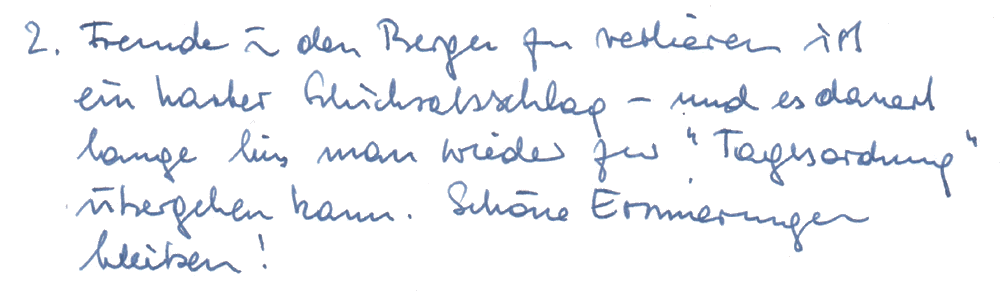 2. Freunde in den Bergen zu verlieren ist
ein harter Schicksalsschlag – und es dauert
lange bis man wieder zur "Tagesordnung"
übergehen kann. Schöne Erinnerungen
bleiben!